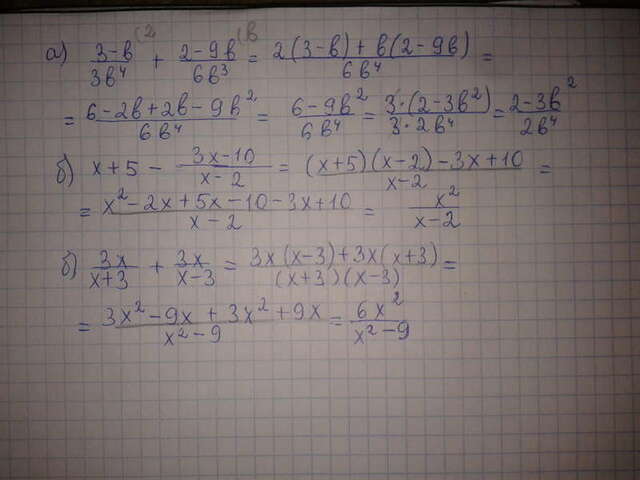 а) (3-в)/(3в⁴) (2 + (2-9в)/(6в³) (в = (2(3-в)+в(2-9в))/(6в⁴) =
= (6-2в+2в-9в²)/(6в⁴) = (6-9в²)/(6в⁴) = (3·(2-3в²))/(3·2в⁴) = (2-3в²)/(2в⁴)
б) x+5 - (3x-10)/(x-2) = ((x+5)(x-2)-3x+10)/(x-2) =
= (x²-2x+5x-10-3x+10)/(x-2) = x²/(x-2)
б) 3x/(x+3) + 3x/(x-3) = (3x(x-3)+3x(x+3))/((x+3)(x-3)) =
= (3x²-9x+3x²+9x)/(x²-9) = 6x²/(x²-9)